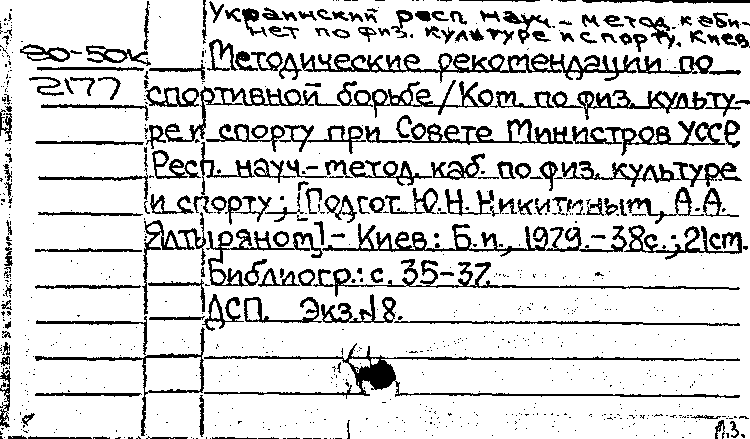 Украинский респ. науч.-метод. каби-
нет по физ. культуре и спорту. Киев
90-50к Методические рекомендации по
2177 спортивной борьбе/Ком. по физ. культу-
ре и спорту при Совете Министров УССР
Респ. науч.-метод. каб. по физ. культуре
и спорту; [Подгот. Ю.Н. Никитиным, А.А.
Ялтыряном].- Киев: Б.и., 1979.-38с.; 21см.
Библиогр.: с. 35-37.
ДСП. Экз.№8.